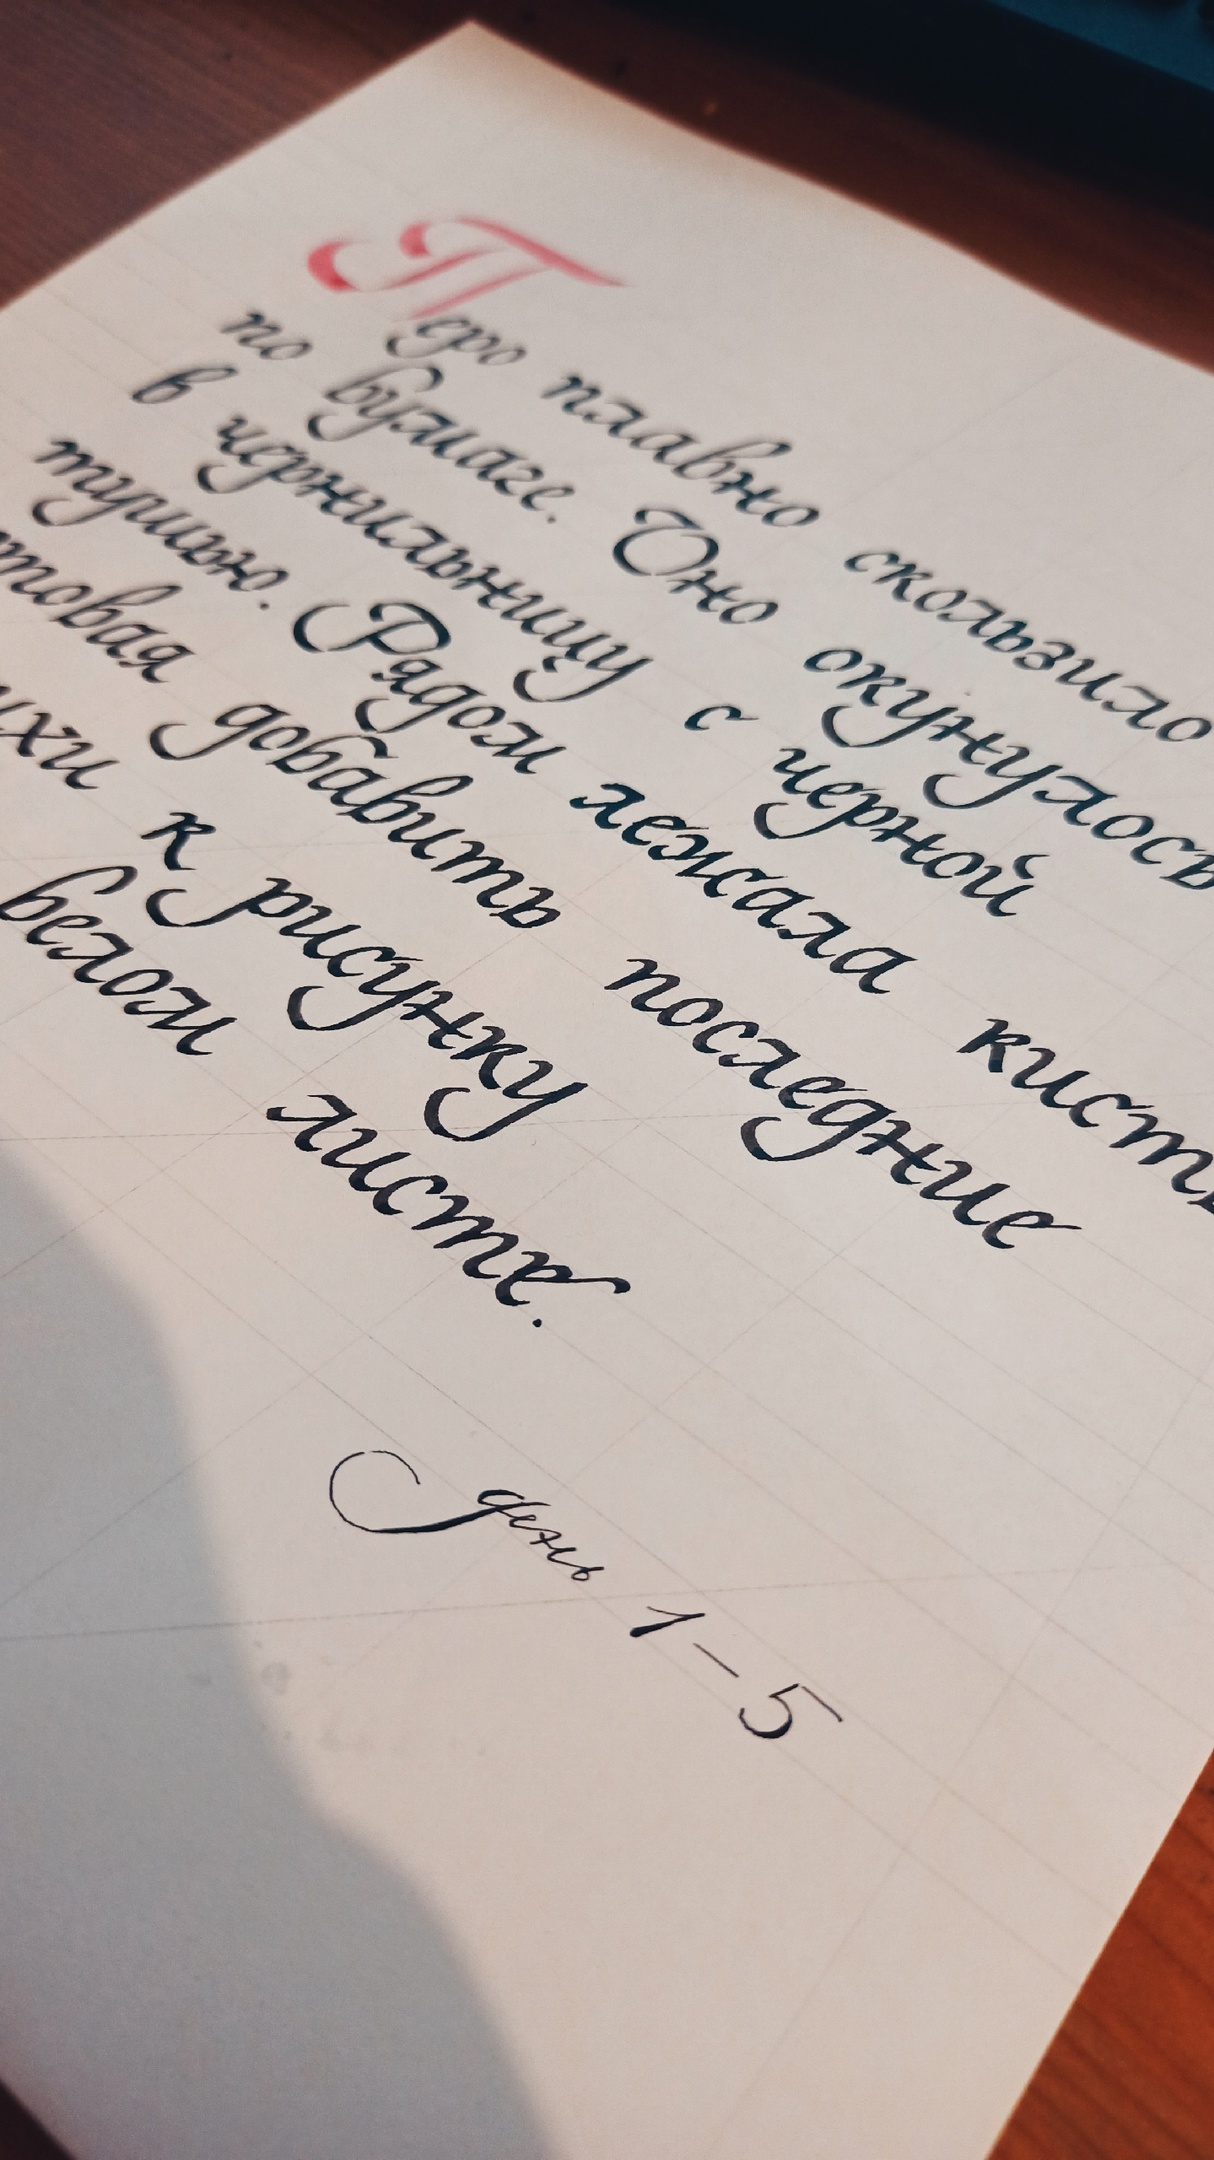 Перо плавно скользило
по бумаге. Оно окунулось
в чернильницу с черной
тушью. Рядом лежала кисть
товая добавить последние
ихи к рисунку
белом листе.
день 1-5